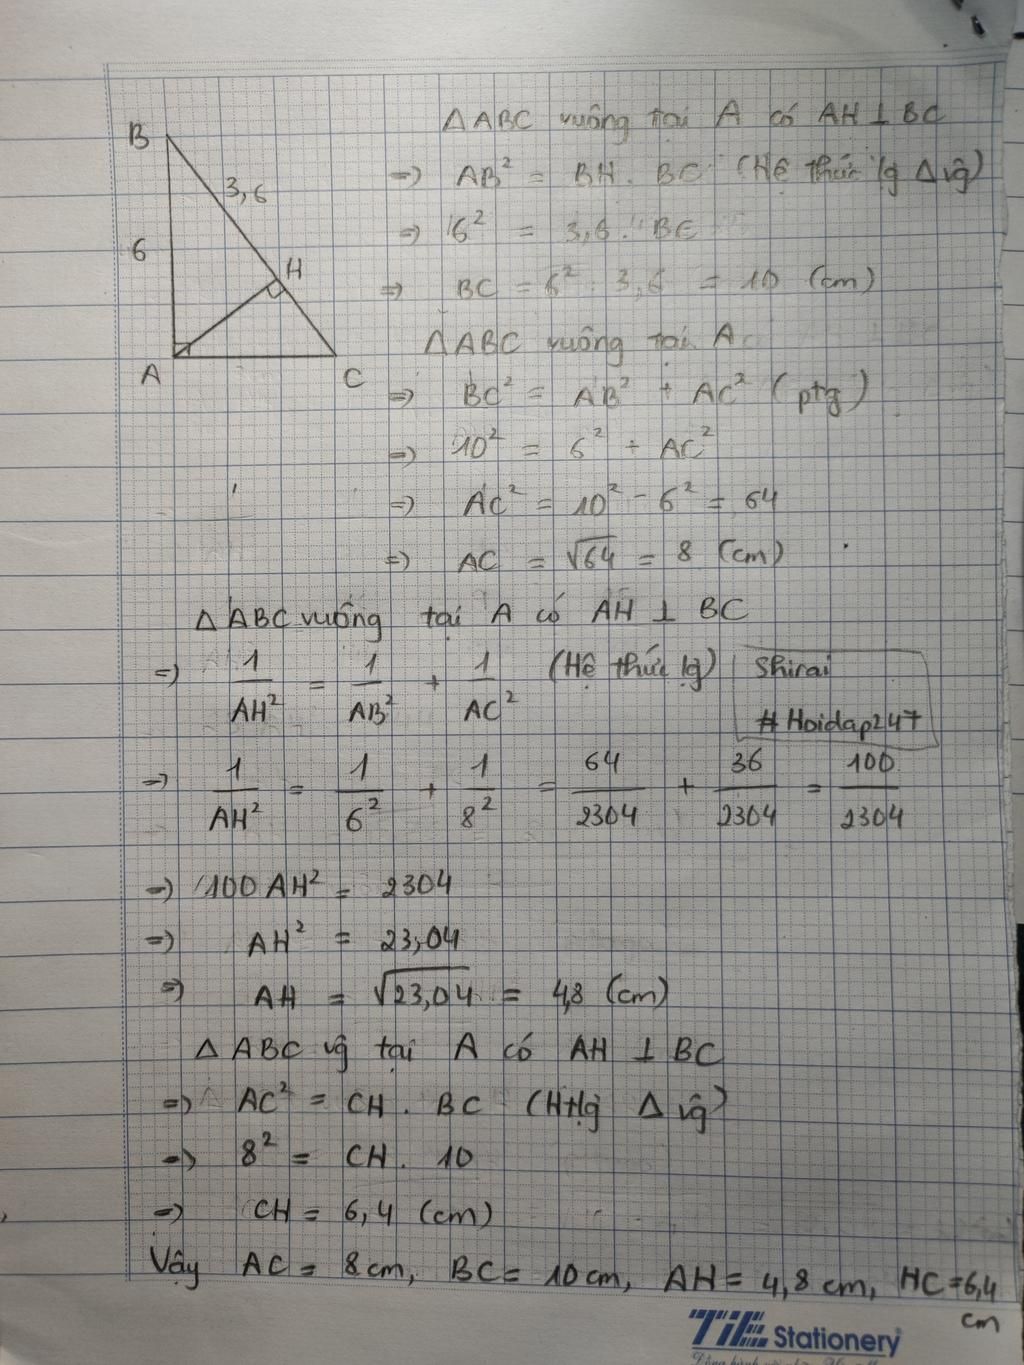 B
3,6
6
H
A
C
ΔABC vuông tại A có AH ⊥ BC
=) AB² = BH . BC (Hệ thức lg Δ vg)
=) 6² = 3,6 . BC
=) BC = 6² : 3,6 = 10 (cm)
ΔABC vuông tại A
=) BC² = AB² + AC² (ptg)
=) 10² = 6² + AC²
=) AC² = 10² - 6² = 64
=) AC = √64 = 8 (cm)
Δ ABC vuông tại A có AH ⊥ BC
=) 1/AH² = 1/AB² + 1/AC² (Hệ thức lg)
Shirai
#Hoidap247
=) 1/AH² = 1/6² + 1/8² = 64/2304 + 36/2304 = 100/2304
=) 100AH² = 2304
=) AH² = 23,04
=) AH = √23,04 = 4,8 (cm)
Δ ABC vg tại A có AH ⊥ BC
=) AC² = CH . BC (Htlg Δ vg)
=) 8² = CH . 10
=) CH = 6,4 (cm)
Vậy AC = 8cm, BC = 10cm, AH = 4,8 cm, HC = 6,4
cm
TiE Stationery